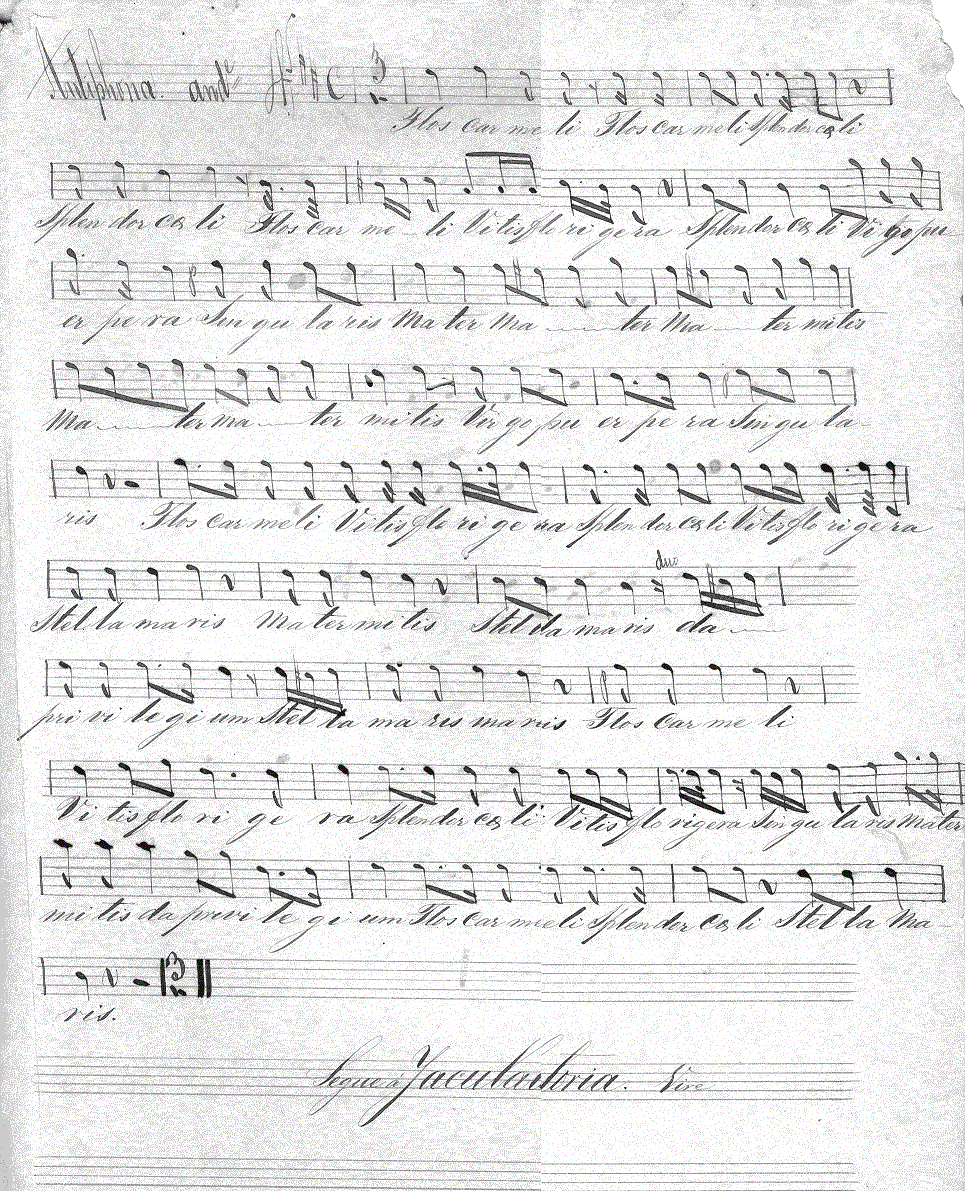 Antiphona. and.e
Flos car me li Flos car me li Splen dor cœ li
Splen dor cœ li Flos car me - li Vitis flo ri ge ra Splen dor cœ li Vi go pu-
er pe ra Sin gu la ris Ma ter Ma ter Ma ter mitis
Ma ter ma ter mi tis Vir go pu er pe ra Sin gu la-
ris Flos car me li Vi tis flo ri ge ra Splen dor cœ li Vi tis flo ri ge ra
duo
Stel la ma ris Ma ter mi tis Stel la ma ris da
pri vi le gi um Stel la ma ris ma ris Flos car me li
Vi tis flo ri ge ra Splen dor cœ li Vi tis flo ri ge ra Sin gu la ris Ma ter
mi tis da privi le gi um Flos car me li Splen dor cœ li Stel la Ma-
ris.
Segue a Jaculatoria. Vire